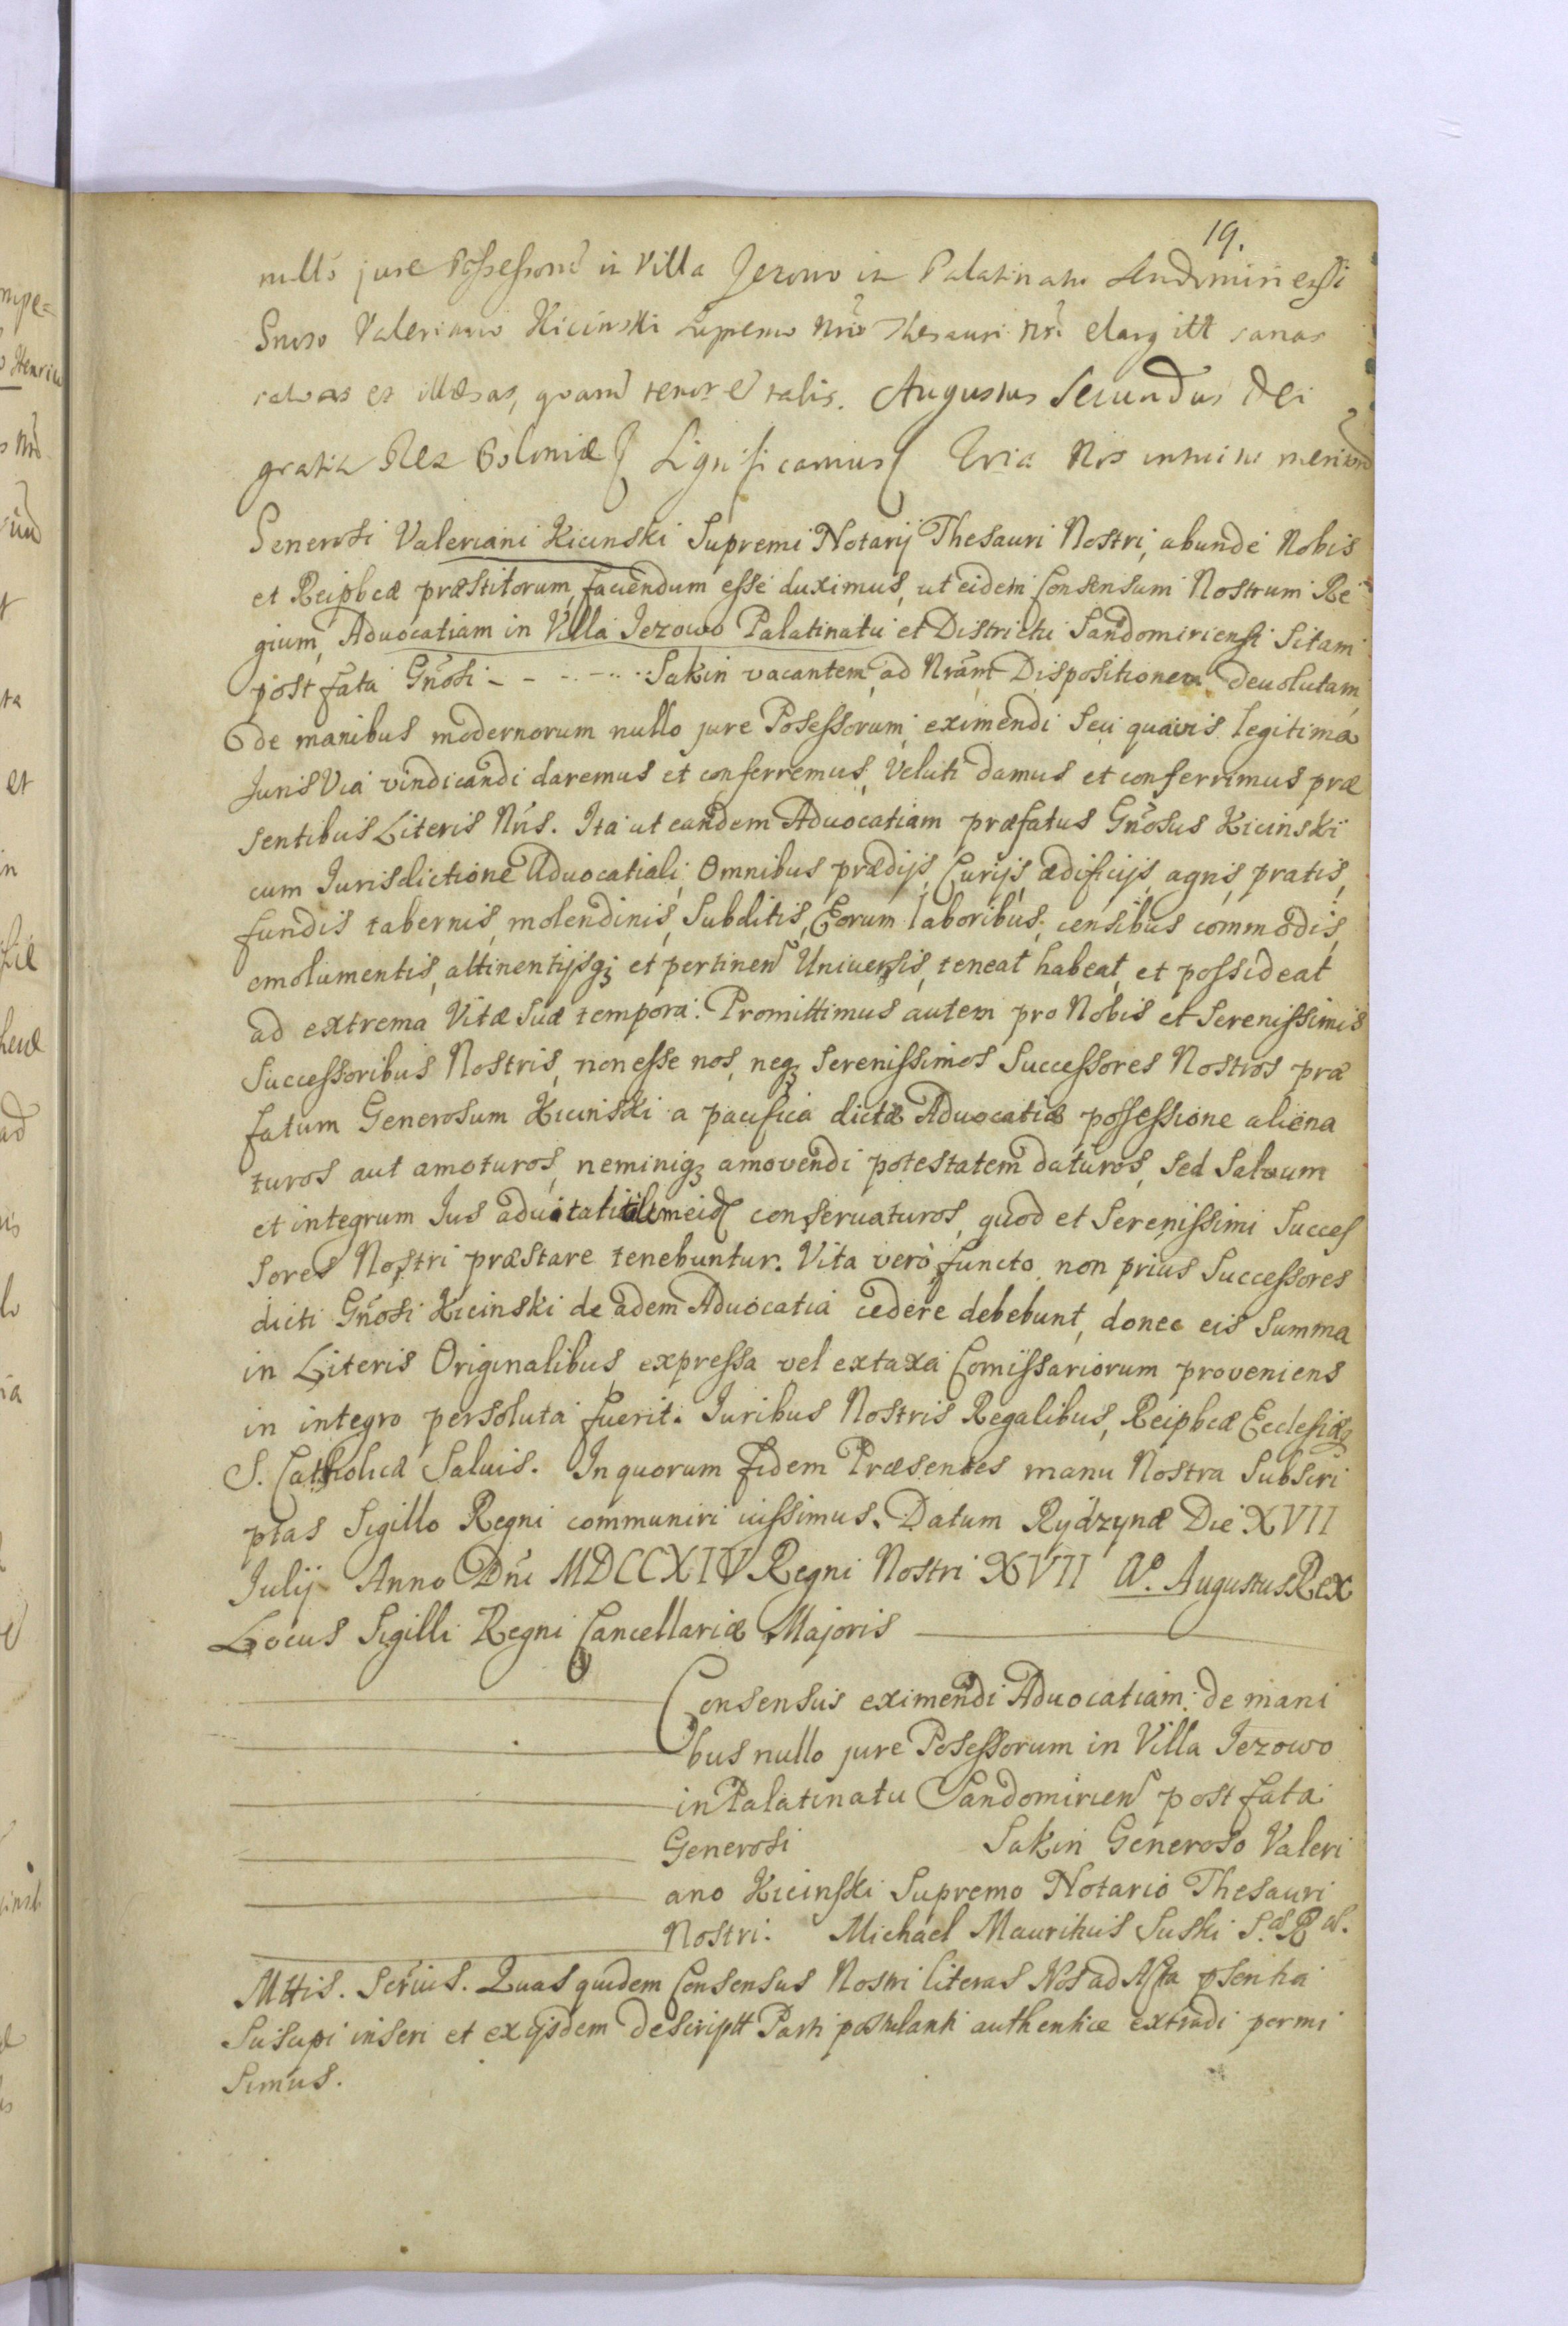 19.
nullo jure Possessorũ in Villa Jezowo in Palatinatu Sendomiriensi
Gnoso Valeriano Kicinski Supremo Nrio Thesauri Nri elargitt sanas
salvas et illæsas, quarũ tenor ẽ talis. Augustus Secundus Dei
gratia Rex Poloniæ Significamus Quia Nos intuitu meritorũ
Generosi Valeriani Kicinski Supremi Notarij Thesauri Nostri, abunde Nobis
et Reipbcæ præstitorum, faciendum esse duximus, ut eidem Consensum Nostrum Re
gium, Advocatiam in Villa Jezowo Palatinatu et Districtu Sandomiriensi Sitam
post fata Gnosi - - - - - - Sakin vacantem, ad Nram Dispositionem devolutam
de manibus modernorum nullo jure Possessorum eximendi seu quavis legitima
Juris Via vindicandi daremus et conferremus, Veluti damus et conferrimus præ
sentibus Literis Nris. Ita ut eandem Advocatiam præfatus Gnosus Kicinski
cum Jurisdictione Advocatiali, Omnibus prædijs, Curijs, ædificijs, agris, pratis,
fundis tabernis, molendinis, Subditis, Eorum laboribus, censibus commodis,
emolumentis, attinentijsq; et pertinen Universis, teneat habeat, et possideat
ad extrema Vitæ Suæ tempora. Promittimus autem pro Nobis et Serenissimis
Successoribus Nostris, non esse nos, neq; Serenissimos Successores Nostros præ
fatum Generosum Kicinski a pacifica dictæ Advocatiæ possessione aliena
turos aut amoturos, neminiq; amovendi potestatem daturos, sed Salvum
et integrum Jus eid conservaturos, quod et Serenissimi Succes
sores Nostri præstare tenebuntur. Vita vero functo non prius Successores
dicti Gnosi Kicinski de adem Advocatia cedere debebunt, donec eis Summa
in Literis Originalibus expressa vel ex taxa Comissariorum proveniens
in integro persoluta fuerit. Juribus Nostris Regalibus, Reipbcæ Ecclesiæq;
S. Catholicæ Salvis. In quorum fidem Præsentes manu Nostra Subscri
ptas Sigillo Regni communiri iussimus. Datum Rydzynæ Die XVII
Julij Anno Dni MDCCXIV Regni Nostri XVII Ao. Augustus Rex
Locus Sigilli Regni Cancellariæ Majoris
Consensus eximendi Advocatiam de mani
bus nullo jure Possessorum in Villa Jezowo
in Palatinatu Sandomirien post fata
Generosi Sakin Generoso Valeri
ano Kicinski Supremo Notario Thesauri
Nostri. Michael Mauritius Suski S. R.
Mttis. Serius. Quas quidem Consensus Nostri literas Nos ad Acta psentia
Suscipi inseri et ex ijsdem descriptt Parti postulanti authentice extradi permi
simus.